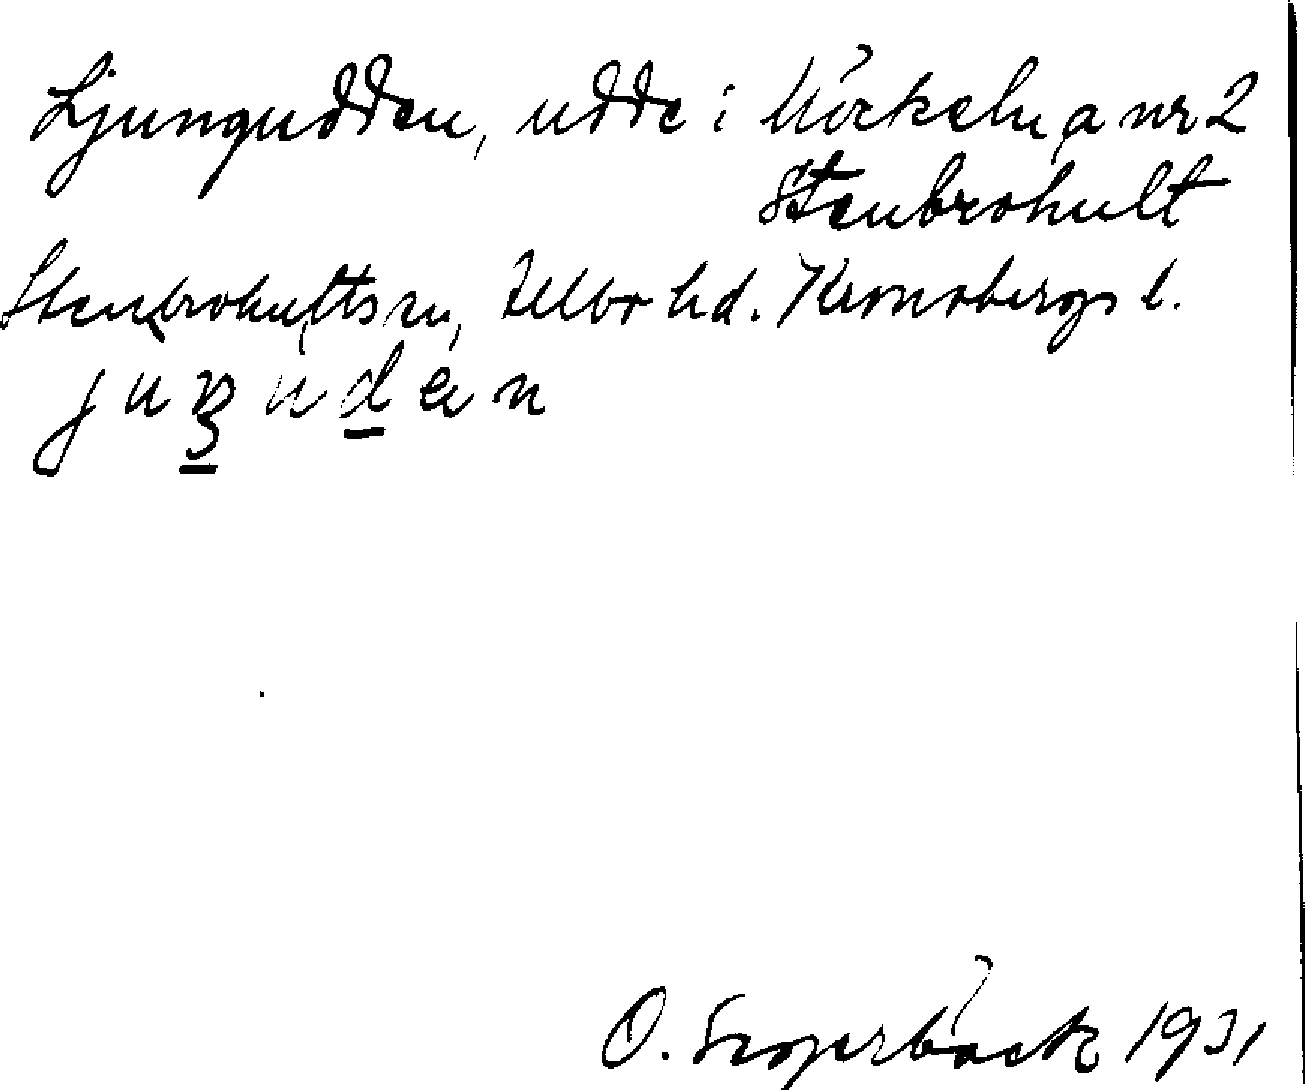 Ljungudden, udde i Möckeln, a nr 2
Stenbrohult
Stenbrohults sn, Allbo hd. Kronobergs l.
O. Segerbäck 1931